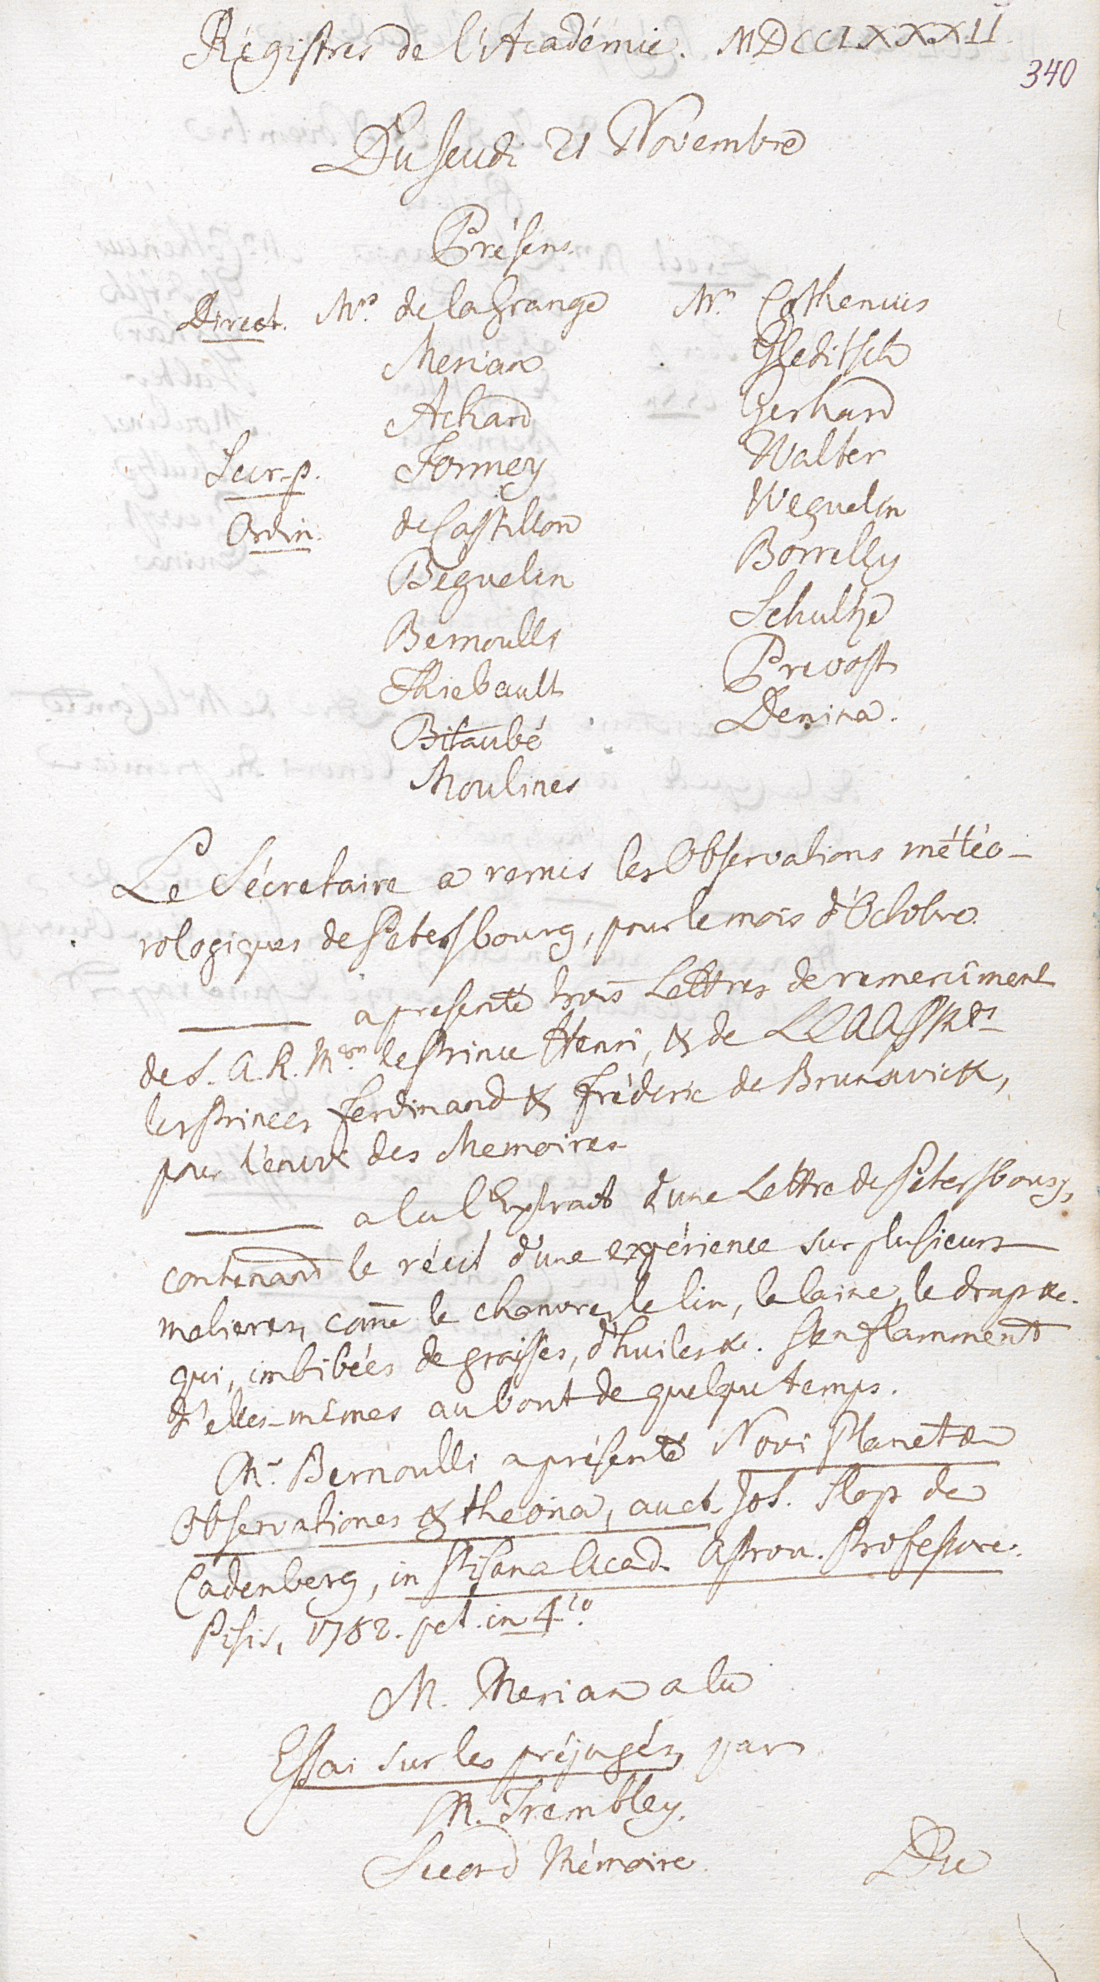 Régistres de l'Académie. MDCCLXXXII
340
Du Jeudi 21 Novembre
Présens
Direct. Mrs de la Grange
Merian
Achard
Secr. p. Formey
Ordin. de Castillon
Beguelin
Bernoulli
Thiebault
Bitaubé
Moulines
Mrs Cothenius
Gleditsch
Gerhard
Walter
Weguelin
Borrelly
Schulze
Prevost
Denina.
Le Sécretaire a remis les Observations météo-
rologiques de Petersbourg, pour le mois d'Octobre.
——— a presenté trois Lettres de remerciment
de S. A. R. Mgr le Prince Henri, & de LL AA SS Mgrs
les Princes Ferdinand & Fréderic de Brunswick,
pour l'envoi des Memoires
——— a lu l'Extrait d'une Lettre de Petersbourg,
contenant le récit d'une expérience sur plusieurs
matieres, come le chanvre, le lin, la laine, le drap &c.
qui, imbibées de graisses, d'huiles &c. s'enflamment
d'elles-mêmes au bout de quelque temps.
Mr Bernoulli a présenté Novi Planetæ
Observationes & theoria, auct. Jos. Slop de
Cadenberg, in Pisana Acad. Astron. Professore.
Pisis, 1782. pet. in 4to.
M. Merian a lu
Essai sur les préjugés, par
M. Trembley.
Second Mémoire.
Du